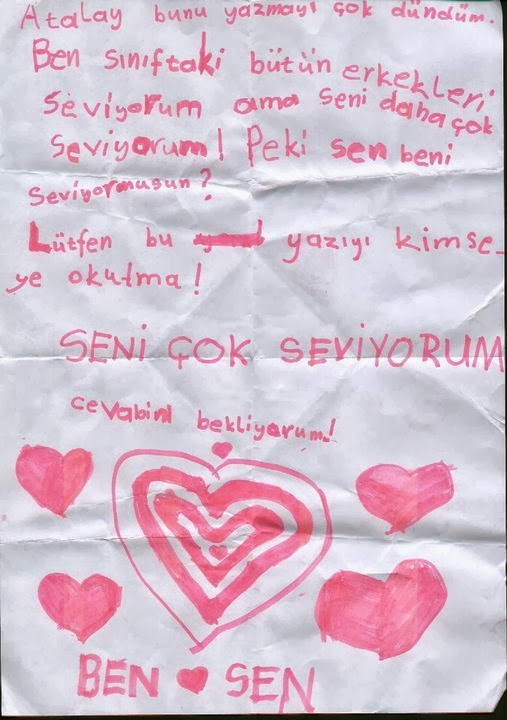 Atalay bunu yazmayı çok dündüm.
Ben sınıftaki bütün erkekleri
seviyorum ama seni daha çok
seviyorum! Peki sen beni
seviyormusun?
Lütfen bu yazıyı kimse-
ye okutma!
SENİ ÇOK SEVİYORUM
cevabını bekliyorum!
BEN SEN